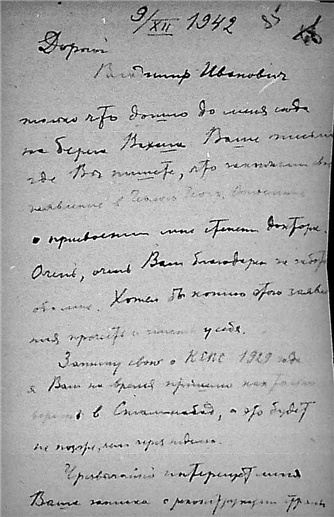 9/XII 1942
Дорогой
Владимир Иванович
только что дошло до меня сюда
на берега Вахша Ваше письмо
где Вы пишете, что
заявление в
о присвоении мне степени доктора.
Очень, очень Вам благодарен за заботы
обо мне. Хотел бы копию этого заявле
ния прочесть и иметь у себя.
Записку свою о КЕПС 1929 года
я Вам на время пришлю как только
в Сталинабад, а это будет
не позже, чем через неделю.
Чрезвычайно интересует меня
Ваша записка о реконструкции